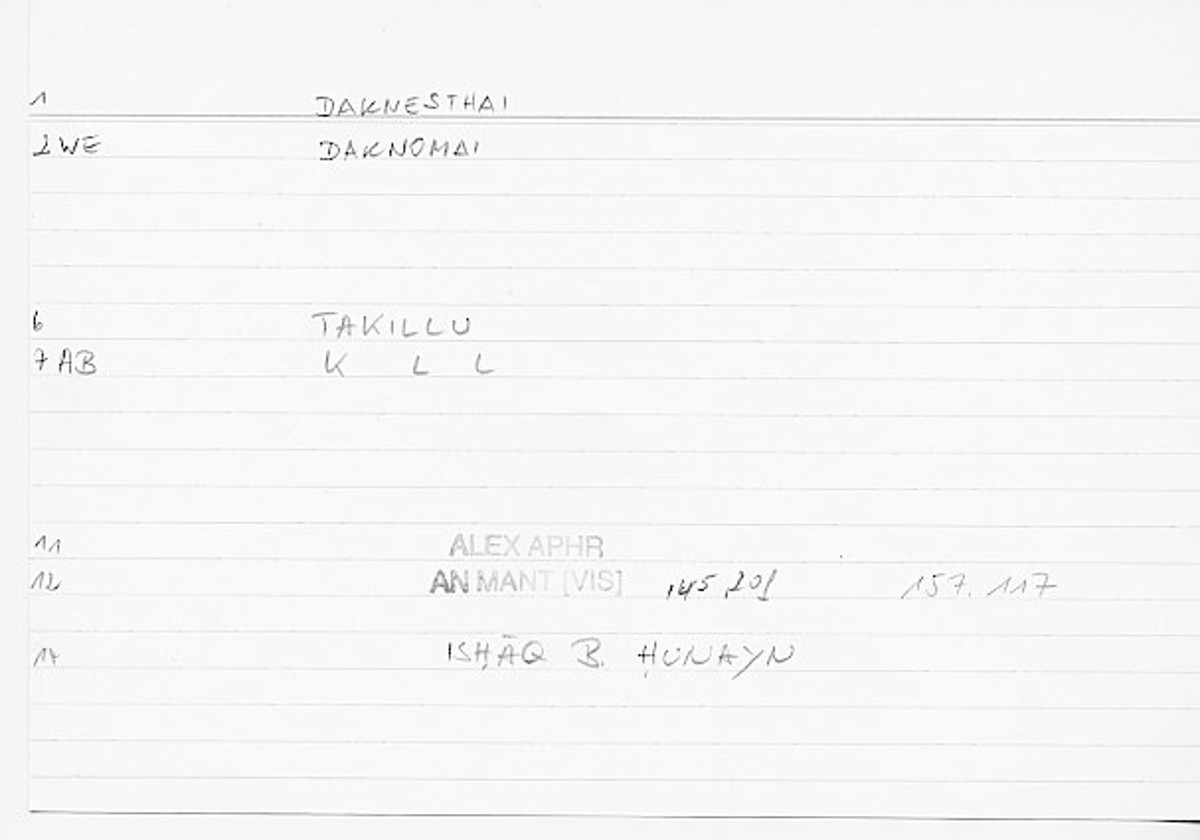 1 DAKNESTHAI
2 WE DAKNOMAI
6 TAKILLU
7 AB K L L
11 ALEX APHR
12 AN MANT [VIS] 145,20f 157.117
14 ISḤĀQ B. ḤUNAYN